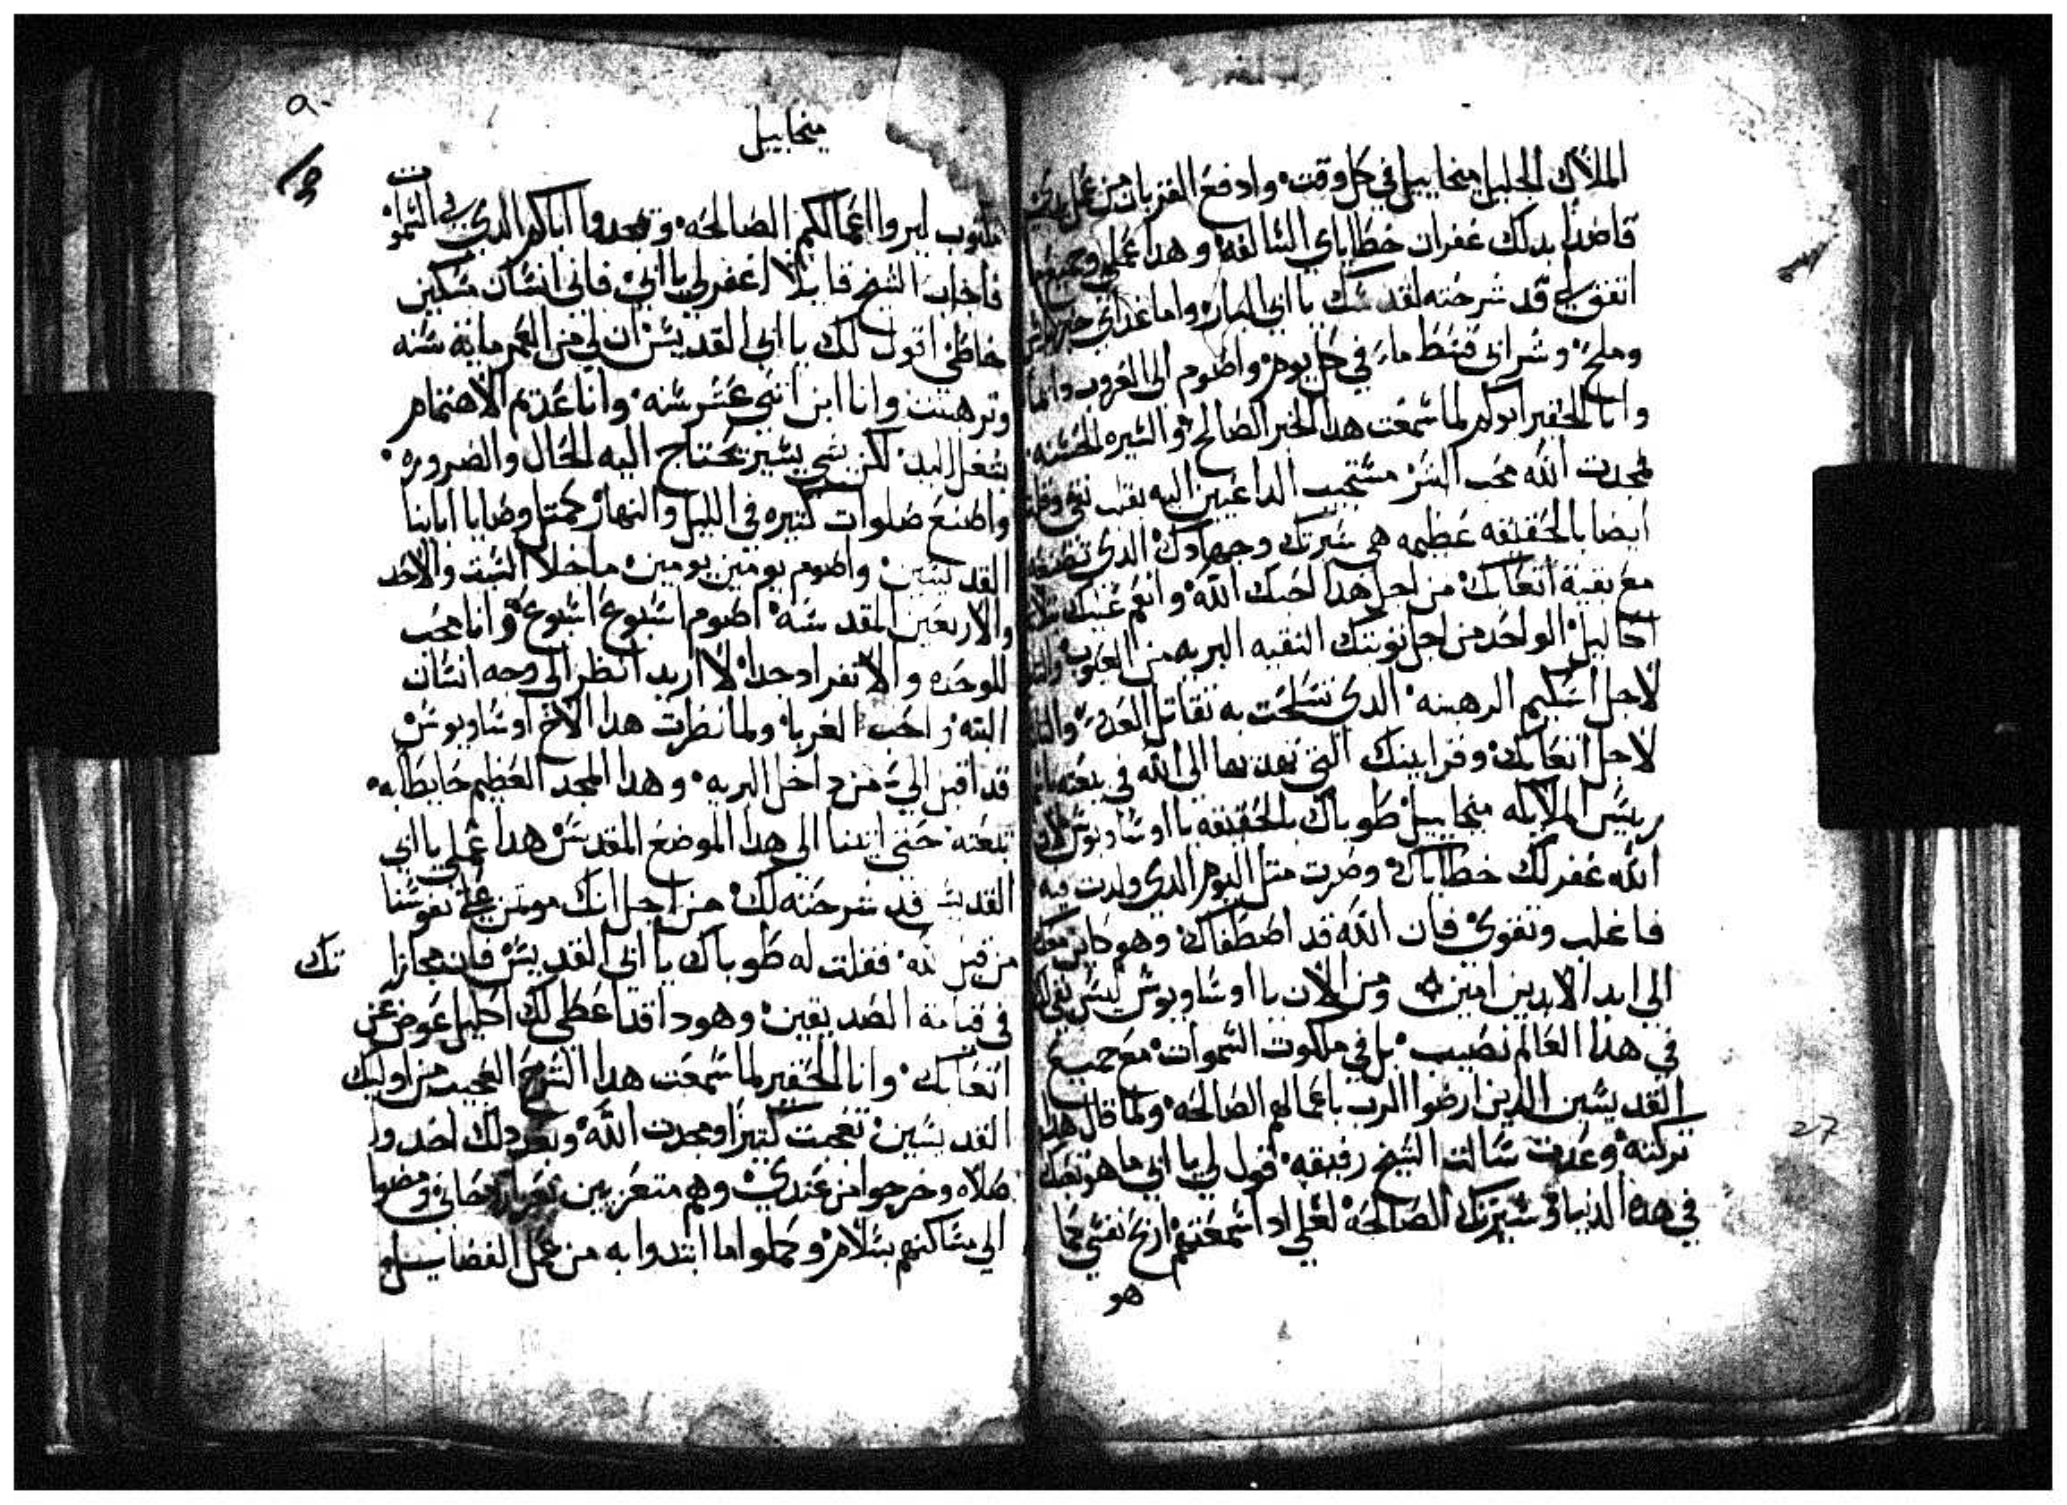 الملاك الجليل ميخاييل في كل وقت وادفع القربان من عمل يدي
قاصدا بدلك غفران خطاياي السالفه وهدا عملي وجميع ما
اتفق لي قد شرحته لقدسك يا ابي البار واما غداي خبز
وملح وشرابي قسط ما في كل يوم واصوم الى الغروب دايما
وانا الحقير ابوكم لما سمعت هدا الخبر الصالح والسيره الحسنه
مجدت الله محب البشر مستجيب الداعيين اليه بقلب نقي وقلت
ايضا بالحقيقه عظيمه هي سيرتك وجهادك الدي تصنعه
مع بقية اتعابك من اجل هدا احبك الله وانعم عليك بتلاتة
اكاليل الواحد من اجل توبتك النقيه البريه من العيوب والتاني
لاجل اسكيم الرهبنه الدي تسلحت به تقاتل العدو والتالت
لاجل اتعابك وقرابينك التي تقدمها الى الله في بيعته باسم
رييس الملايكه ميخاييل طوباك بالحقيقه يا اوساويوس لان
الله غفر لك خطاياك وصرت متل اليوم الدي ولدت فيه
فاغلب وتقوى فان الله قد اصطفاك وهو كاين معك
الى ابد الابدين امين ومن الان يا اوساويوس ليس بقي لك
في هدا العالم نصيب بل في ملكوت السموات مع جميع
القديسين الدين ارضوا الرب باعمالهم الصالحه ولما قال هدا
تركته وعدت سالت الشيخ رفيقه قول لي يا ابي ما هو تعبك
في هده الدنيا وسيرتك الصالحه لعلي ادا سمعتهم اربح نفسي كما
هو
٩٠
ميخاييل
مكتوب ليروا اعمالكم الصالحه ويمجدوا اباكم الدي في السموات
فاجاب الشيخ قايلا اغفر لي يا ابي فاني انسان مسكين
خاطي اقول لك يا ابي القديس ان لي من العمر ماية سنه
وترهبنت وانا ابن اتني عشر سنه وانا عديم الاهتمام
بشغل اليد لكن شي يسير يحتاج اليه الحال والضروره
واصنع صلوات كتيره في الليل والنهار كمتل وصايا اباينا
القديسين واصوم يومين يومين ما خلا السبت والاحد
والاربعين المقدسه اصوم اسبوع اسبوع وانا محب
للوحده والانفراد جدا لا اريد انظر الى وجه انسان
البته واحب الغربا ولما نظرت هدا الاخ اوساويوس
قد اقبل الي من داخل البريه وهدا المجد العظيم حايط به
تبعته حتى اتينا الى هدا الموضع المقدس هدا عملي يا ابي
القديس قد شرحته لك من اجل انك موتمن على نفوسنا
من قبل الله فقلت له طوباك يا ابي القديس فان مجازاتك
في قيامة الصديقين وهودا قد اعطي لك اكليل عوض عن
اتعابك وانا الحقير لما سمعت هدا الشرح العجيب من اوليك
القديسين تعجبت كتيرا ومجدت الله وبعد دلك اخدوا
صلاه وخرجوا من عندي وهم متعزيين بعزا روحاني ومضوا
الى مساكنهم بسلام وكملوا ما ابتدوا به من عمل الفضايل
27